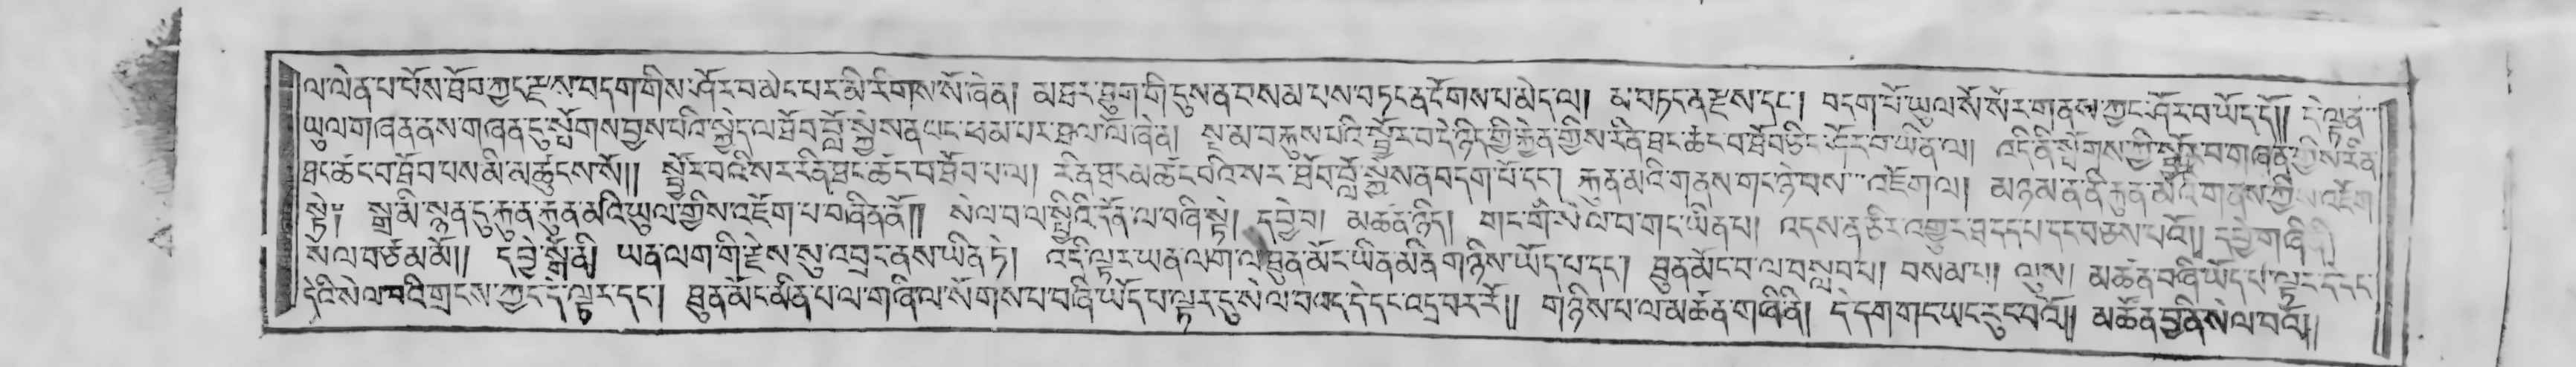 ལ་ལེན་པ་པོས་ཐོབ་ཀྱང་རྫས་བདག་གིས་ཤོར་བ་མེད་པར་མི་རིགས་སོ་ཞེ་ན། མཐར་ཐུག་གི་དུས་ན་བསམ་པས་བཏང་ན་དོགས་པ་མེད་ལ། མ་བཏང་ན་རྫས་དང་། བདག་པོ་ཡུལ་སོ་སོར་གནས་ཀྱང་ཤོར་བ་ཡོད་དོ།། དེ་ལྟ་ན་
ཡུལ་གཞན་ནས་གཞན་དུ་སྤོགས་བྱས་པའི་སྐྱེད་ལ་ཐོབ་བློ་སྐྱེས་ན་ཡང་ཕམ་པར་ཐལ་ལོ་ཞེ་ན། སྔ་མ་བརྐུས་པའི་སྦྱོར་བ་དེ་ཉིད་ཀྱི་རྐྱེན་གྱིས་རིན་ཐང་ཚང་བ་ཐོབ་ཅིང་ཤོར་བ་ཡིན་ལ། འདི་ནི་སྤོགས་ཀྱི་སྦྱོར་བ་གཞན་གྱིས་རིན་
ཐང་ཚང་བ་ཐོབ་པས་མི་མཚུངས་སོ།། སྦྱོར་བའི་སར་རིན་ཐང་ཚང་བ་ཐོབ་པ་ལ། རིན་ཐང་མ་ཚང་བའི་སར་ཐོབ་བློ་སྐྱེས་ན་བདག་པོ་དང་། རྐུན་མའི་གནས་གང་ཉེ་བས་འཇོག་ལ། མཉམ་ན་ནི་རྐུན་མའི་གནས་ཀྱིས་འཇོག་
སྟེ། སྒྲ་མི་སྙན་དུ་རྐུན་རྐུན་མའི་ཡུལ་གྱིས་འཇོག་པ་བཞིན་ནོ།། སེལ་བ་ལ་སྤྱིའི་དོན་ལ་བཞི་སྟེ། དབྱེ་བ། མཚན་ཉིད། གང་གི་སེལ་བ་གང་ཡིན་པ། འདས་ན་ཅིར་འགྱུར་ཐད་དཔ་དང་བཅས་པའོ།། དབྱེ་གཞི་ནི།
སེལ་བཙམ་མོ།། དབྱེ་སྒོ་ནི། ཡན་ལག་གི་རྗེས་སུ་འབྲང་ནས་ཡིན་ཏེ། འདི་ལྟར་ཡན་ལག་ལ་ཐུན་མོང་ཡིན་མིན་གཉིས་ཡོད་པ་དང་། ཐུན་མོང་བ་ལ་བསླབ་པ། བསམ་པ། ལུས། མཚན་བཞི་ཡོད་པ་ལྟར་དང་
དེའི་སེལ་བའི་གྲངས་ཀྱང་དེ་ལྟར་དང་། ཐུན་མོང་མིན་པ་ལ་གཞི་ལ་སོགས་པ་བཞི་ཡོད་པ་ལྟར་དུ་སེལ་བའང་དེ་དང་འདྲ་བར་རོ།། གཉིས་པ་ལ་མཚོན་གཞི་ནི། དེ་དག་གང་ཡང་རུང་བའོ།། མཚོན་བྱ་ནི་སེལ་བའོ།།